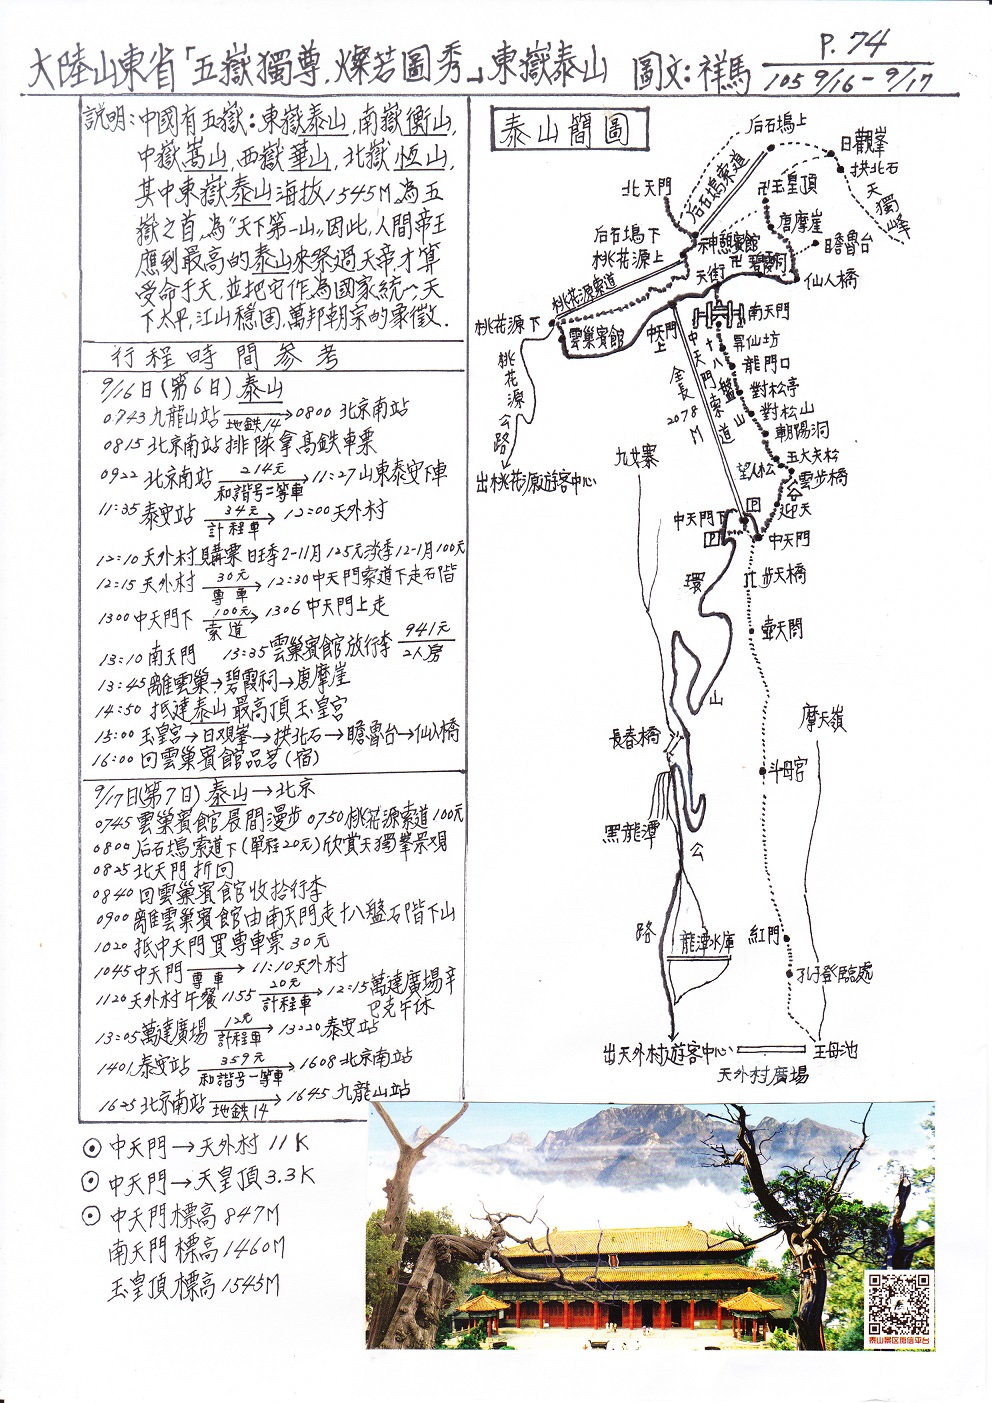 P.74
大陸山東省「五嶽獨尊.燦若圖秀」東嶽泰山 圖文:祥馬 105 9/16-9/17
說明:中國有五嶽:東嶽泰山,南嶽衡山,
中嶽嵩山,西嶽華山,北嶽恆山,
其中東嶽泰山海拔1545M,為五
嶽之首,為"天下第一山",因此,人間帝王
應到最高的泰山來祭過天帝才算
受命于天,並把它作為國家統一,天
下太平,江山穩固,萬邦朝宗的象徵.
行程時間參考
9/16日(第6日)泰山
0743九龍山站 地鉄14→0800北京南站
0815北京南站排隊拿高鉄車票
0922北京南站 214元 和諧号二等車→11:27山東泰安下車
11:35泰安站 34元 計程車→12:00天外村
12:10天外村購票旺季2-11月125元淡季12-1月100元
12:15天外村 30元 專車→12:30中天門索道下走石階
1300中天門下 100元 索道→1306中天門上走
13:10南天門 13:35雲巢賓館放行李 941元 2人房
13:45離雲巢→碧霞祠→唐摩崖
14:50抵達泰山最高頂玉皇宮
15:00玉皇宮→日观峯→拱北石→瞻魯台→仙人橋
16:00回雲巢賓館品茗(宿)
9/17日(第7日)泰山→北京
0745雲巢賓館晨間漫步 0750桃花源索道100元
0800后石塢索道下(單程20元)欣賞天獨峯景观
0825北天門折回
0840回雲巢賓館收拾行李
0900離雲巢賓館由南天門走十八盤石階下山
1020抵中天門買專車票30元
1045中天門 專車→11:10天外村
1120天外村午餐 1155 20元 計程車→12:15萬達廣場辛
巴克午休
13:05萬達廣場 12元 計程車→13:20泰安站
1401泰安站 359元 和諧号一等車→1608北京南站
1625北京南站 地鉄14→1645九龍山站
⊙中天門→天外村11K
⊙中天門→天皇頂3.3K
⊙中天門標高847M
南天門標高1460M
玉皇頂標高1545M
泰山簡圖
后石塢上
日觀峯
拱北石
天獨峰
北天門
后石塢索道
卍玉皇頂
唐摩崖
瞻魯台
后石塢下
桃花源上
神憩賓館
卍碧霞祠
天街
仙人橋
桃花源索道
桃花源下
雲巢賓館
中天門上
南天門
昇仙坊
十八盤
龍門口
對松亭
對松山
朝陽洞
五大夫松
望人松
雲步橋
中天門索道
全長2078M
桃花源公路
出桃花源遊客中心
九女寨
迎天
P
中天門下
P
中天門
步天橋
壺天閣
環山公路
長春橋
黑龍潭
摩天嶺
斗母宮
龍潭水庫
紅門
孔子登臨處
出天外村遊客中心
王母池
天外村廣場
泰山景区微信平台